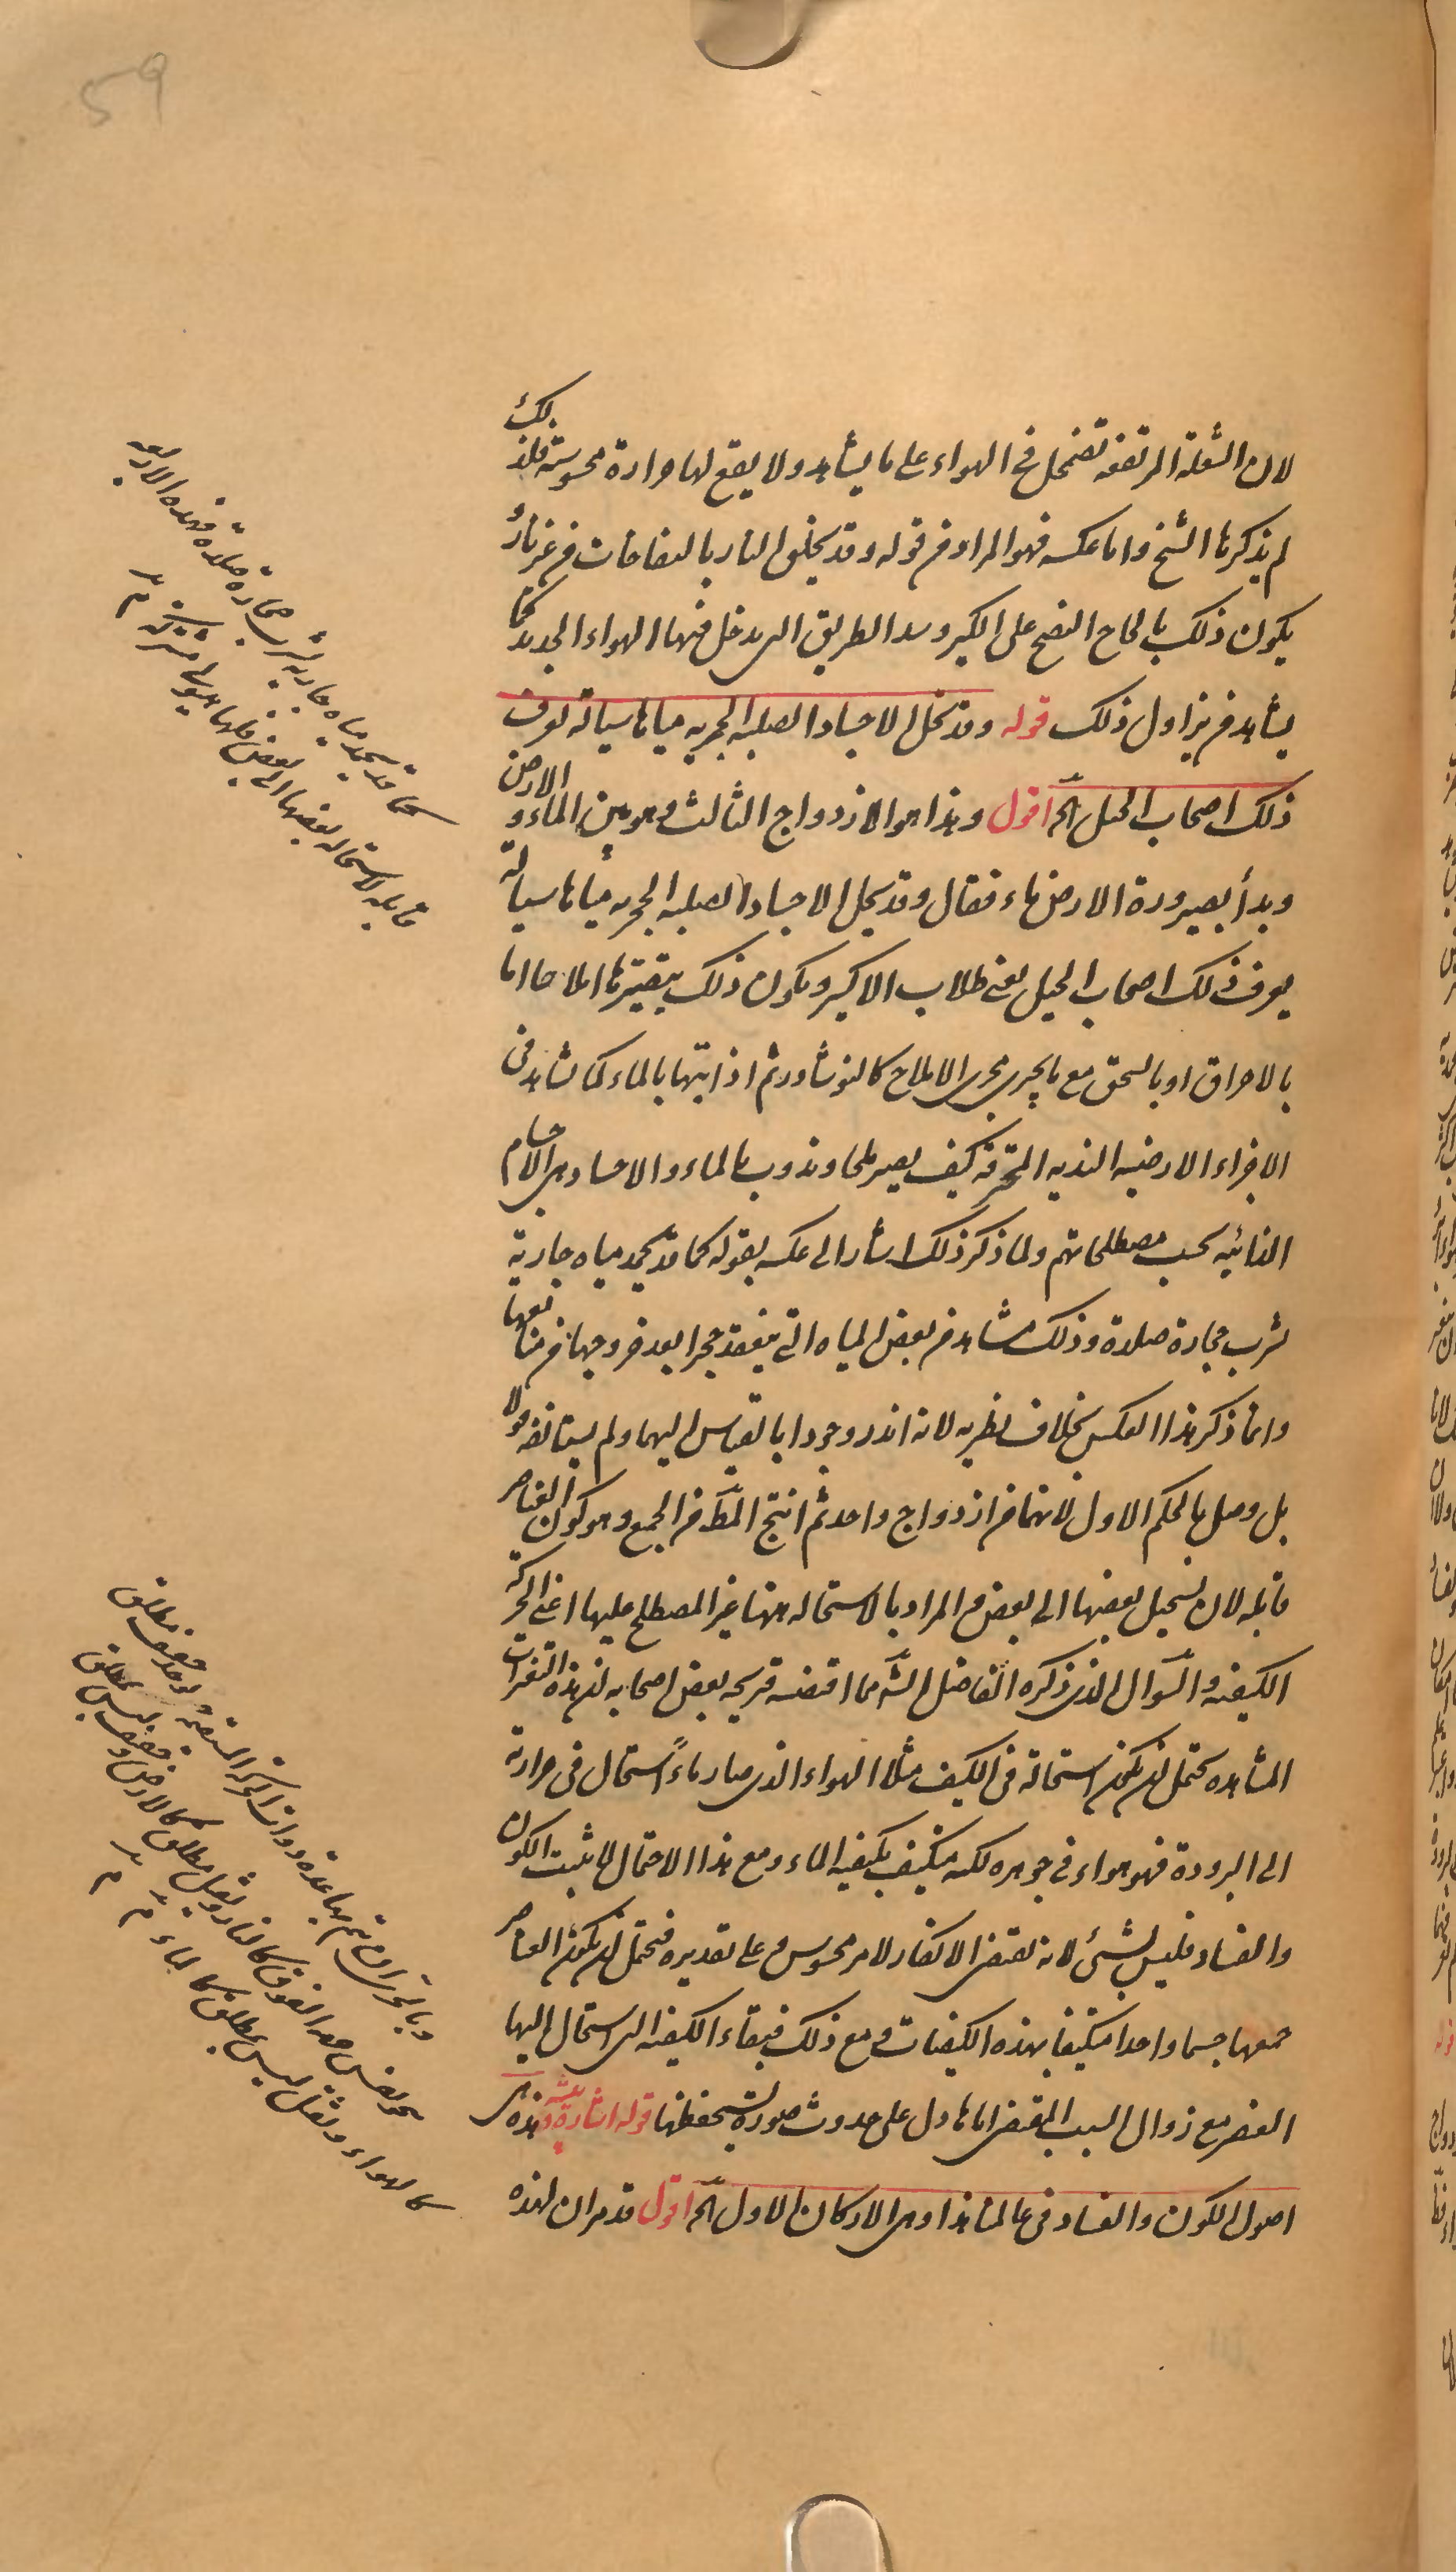 59
لان الشعلة المرتفعه تضمحل فى الهواء على ما يشاهد ولا يقع لها حرارة محسوسة فلذلك
لم يذكرها الشيخ واما عكسه فهو المراد من قوله وقد يخلق النار بالنفاخات من غير نار و
يكون ذلك بالحاح النفخ على الكير وسد الطريق التى يدخل فيها الهواء الجديد كما
يشاهد من يزاول ذلك قوله وقد تحل الاجساد الصلبه الحجريه مياها سيالة تعرف
ذلك اصحاب الحيل الخ اقول وهذا هو الازدواج الثالث وهو بين الماء و الارض
وبدأ بصيرورة الارض ماء فقال وقد يحل الاجساد الصلبه الحجريه مياها سيالة
يعرف ذلك اصحاب الحيل يعنى طلاب الاكسير ويكون ذلك بتصييرها املاحا اما
بالاحراق او بالسحق مع ما يجرى مجرى الاملاح كالنوشادر ثم اذابتها بالماء كما نشاهد فى
الاجزاء الارضيه النديه المحترقه كيف يصير ملحا وتذوب بالماء والاجساد هى الاجسام
الذائبيه بحسب مصطلحاتهم ولما ذكر ذلك اشار الى عكسه بقوله كما قد يجمد مياه جارية
تشرب حجارة صلدة وذلك مشاهد من بعض المياه التى ينعقد حجرا بعد خروجها من منابعها
وانما ذكر هذا العكس بخلاف نظيريه لانه اندر وجودا بالقياس اليهما ولم يستانفه قولا
بل وصل بالحكم الاول لانهما من ازدواج واحد ثم انتج المط من الجميع وهو كون العناصر
قابله لان يستحيل بعضها الى بعض والمراد بالاستحاله ههنا غير المصطلح عليها اعنى الحركة
الكيفيه والسؤال الذى ذكره الفاضل الش مما اقتضته قريحه بعض اصحابه ان هذه التغيرات
المشاهده يحتمل ان يكون استحالة فى الكيف مثلا الهواء الذى صار ماءً استحال فى حرارته
الى البرودة فهو هواء فى جوهره لكنه متكيف بكيفيه الماء ومع هذا الاحتمال لا يثبت الكون
والفساد فليس بشئ لانه يقتضى الانكار لامر محسوس وعلى تقديره فيحتمل ان يكون العناصر
جميعها جسما واحدا متكيفا بهذه الكيفيات ومع ذلك فبقاء الكيفيه التى استحال اليها
العنصر مع زوال السبب المقتضى اياها دل على حدوث صورة تستحفظها قوله اشارة وتنبيه هذه هى
اصول الكون والفساد فى عالمنا هذا وهى الاركان الاول الخ اقول قد مر ان لهذه
كما قد يجمد مياه جاريه تشرب حجارة صلدة فهذه الاربعه
قابله للاستحاله بعضها الى بعض فلها هيولى مشتركه
وبالحرى ان تم بها عدة ذوات الحركه المستقيمه و
نحو نفس جهه الفوق كالنار وثقيل مطلق كالارض وخفيف ليس بمطلق
كالهواء وثقيل ليس بمطلق كالماء